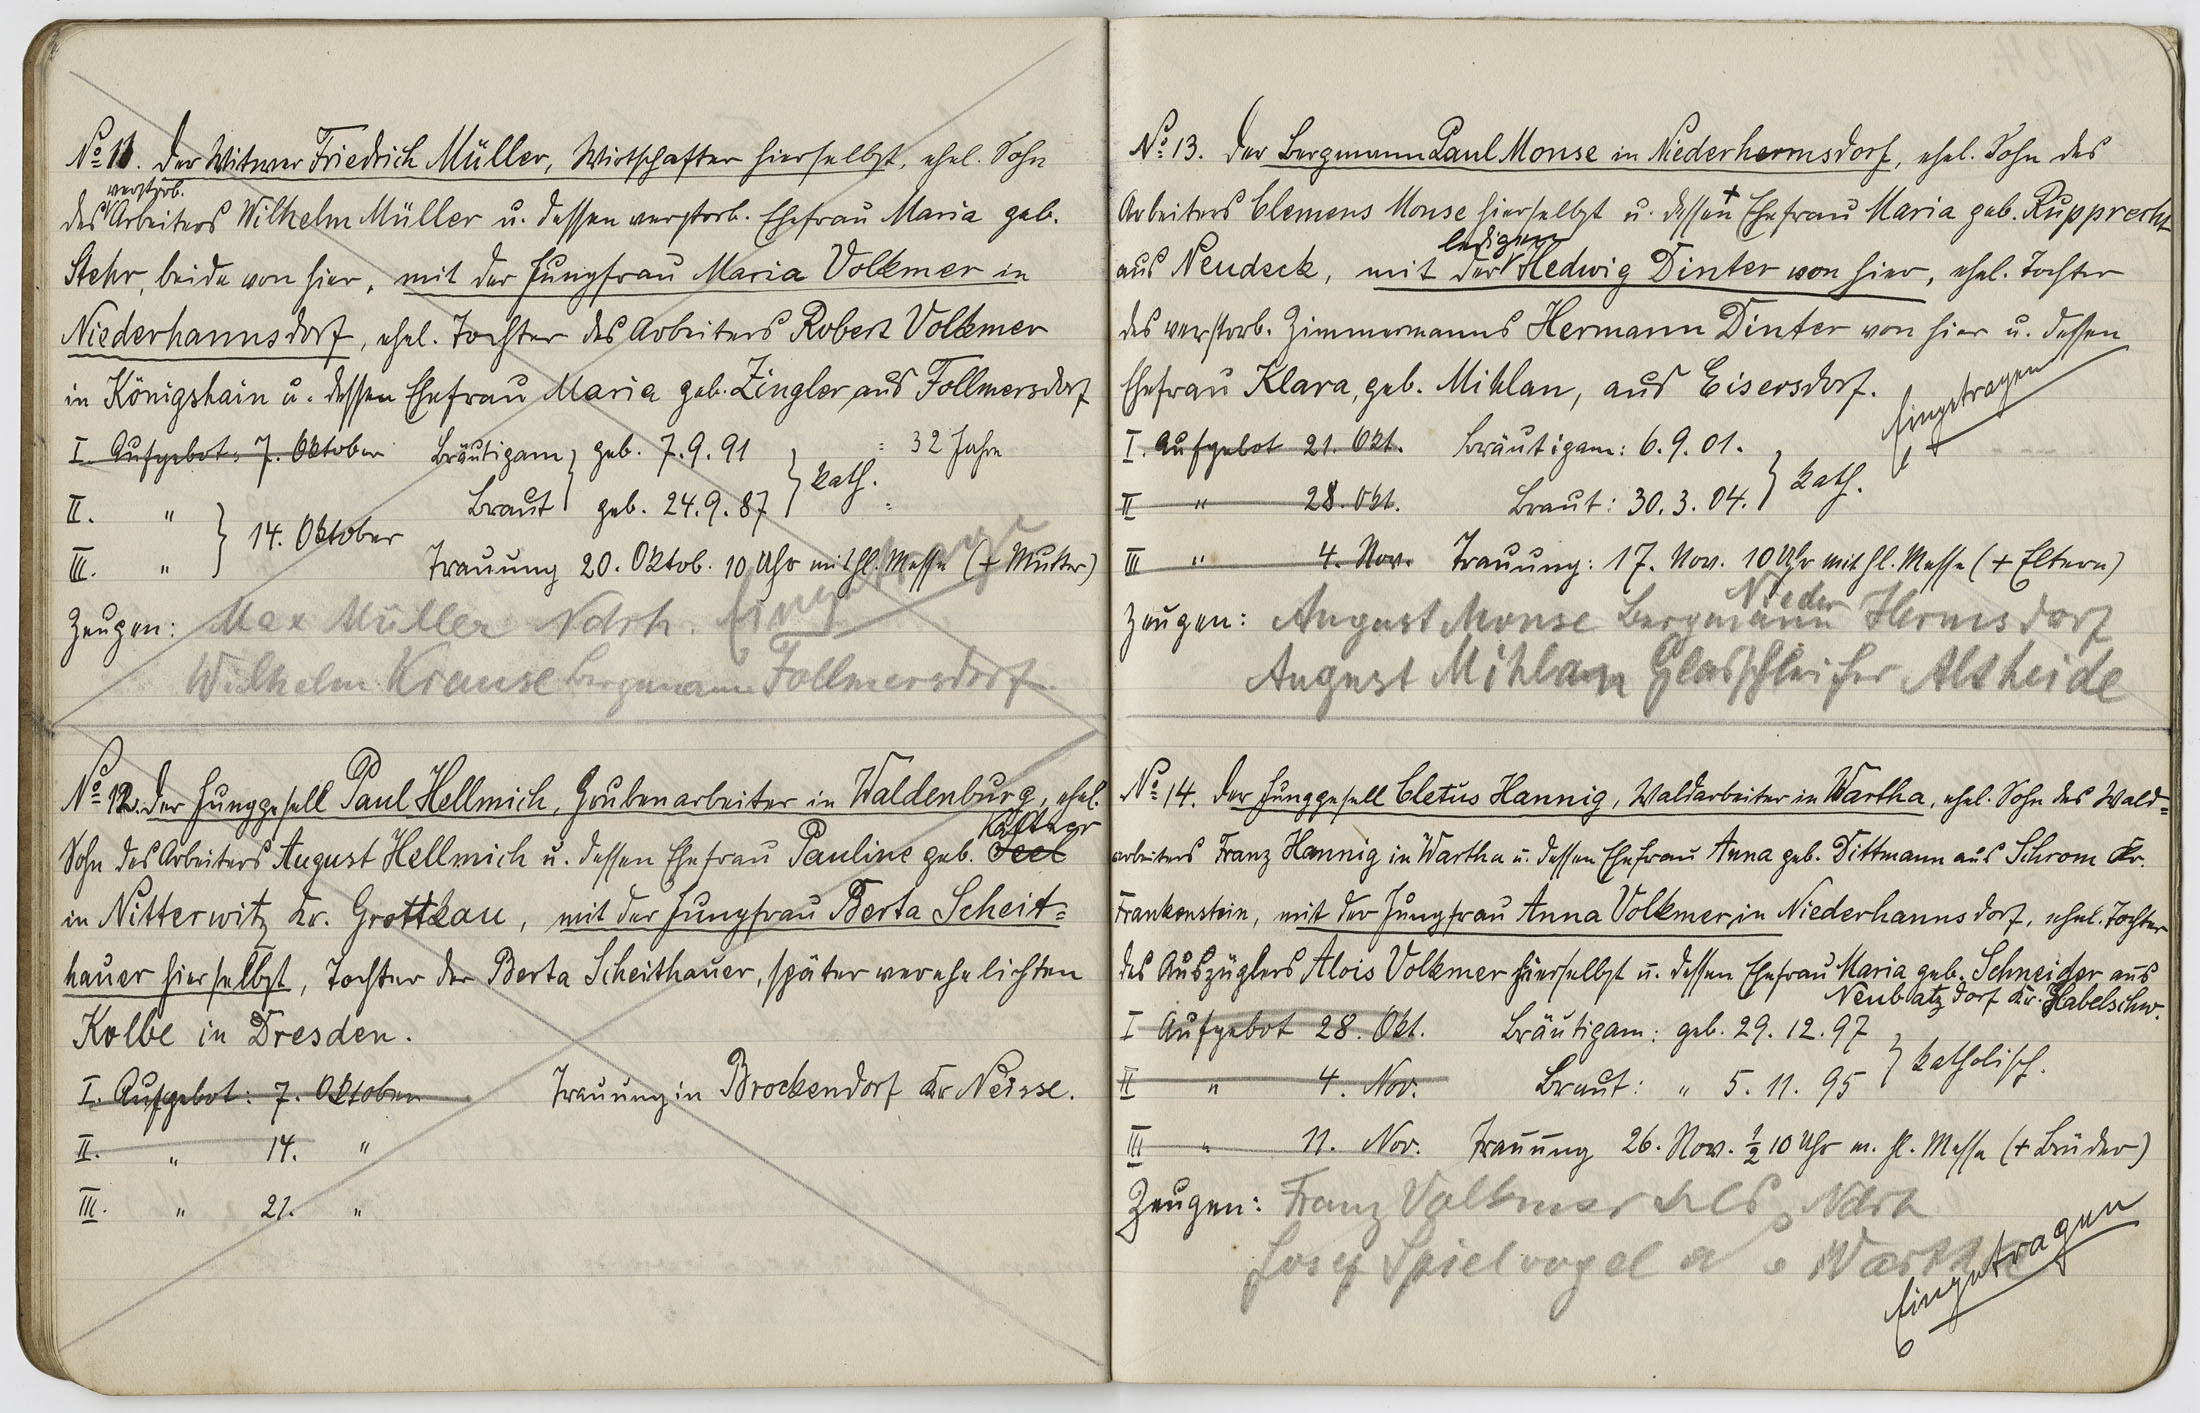 No 11. Der Witwer Friedrich Müller, Wirtschafter hierselbst, ehel. Sohn
verstorb.
des Arbeiters Wilhelm Müller u. dessen verstorb. Ehefrau Maria geb.
Stehr, beide von hier, mit der Jungfrau Maria Volkmer in
Niederhannsdorf, ehel. Tochter des Arbeiters Robert Volkmer
in Königshain u. dessen Ehefrau Maria geb. Zingler aus Follmersdorf
I. Aufgebot: 7. Oktober Bräutigam geb. 7.9.91 = 32 Jahre
II. " Braut geb. 24.9.87 kath.
14. Oktober
III. " Trauung 20. Oktob. 10 Uhr mit hl. Messe (+ Mutter)
Zeugen: Max Müller Ndrh. Eingetragen
Wilhelm Krause Bergmann Follmersdorf.
No 12. Der Junggesell Paul Hellmich, Grubenarbeiter in Waldenburg, ehel.
Sohn des Arbeiters August Hellmich u. dessen Ehefrau Pauline geb.
in Nitterwitz Kr. Grottkau, mit der Jungfrau Berta Scheit=
hauer hierselbst, Tochter der Berta Scheithauer, später verehelichten
Kolbe in Dresden.
I. Aufgebot: 7. Oktober Trauung in Brockendorf Kr Neisse.
II. " 14. "
III. " 21. "
No 13. Der Bergmann Paul Monse in Niederhermsdorf, ehel. Sohn des
Arbeiters Clemens Monse hierselbst u. dessen + Ehefrau Maria geb. Rupprecht
ledigen
aus Neudeck, mit der Hedwig Dinter von hier, ehel. Tochter
des verstorb. Zimmermanns Hermann Dinter von hier u. dessen
Ehefrau Klara, geb. Mihlan, aus Eisersdorf.
Eingetragen
I. Aufgebot 21. Okt. Bräutigam: 6.9.01.
II " 28. Okt. Braut: 30.3.04. kath.
III " 4. Nov. Trauung: 17. Nov. 10 Uhr mit hl. Messe (+ Eltern)
Nieder
Zeugen: August Monse Bergmann Hermsdorf
August Mihlan Glasschleifer Altheide
No 14. Der Junggesell Cletus Hannig, Waldarbeiter in Wartha, ehel. Sohn des Wald=
arbeiters Franz Hannig in Wartha u. dessen Ehefrau Anna geb. Dittmann aus Schrom Kr.
Frankenstein, mit der Jungfrau Anna Volkmer in Niederhannsdorf, ehel. Tochter
des Auszüglers Alois Volkmer hierselbst u. dessen Ehefrau Maria geb. Schneider aus
Neubatzdorf Kr. Habelschw.
I Aufgebot 28. Okt. Bräutigam: geb. 29.12.97
II " 4. Nov. Braut: " 5.11.95 katholisch.
III " 11. Nov. Trauung 26. Nov. ½ 10 Uhr m. hl. Messe (+ Brüder)
Zeugen: Franz Volkmer Ndrh
Josef Spielvogel Wartha
Eingetragen